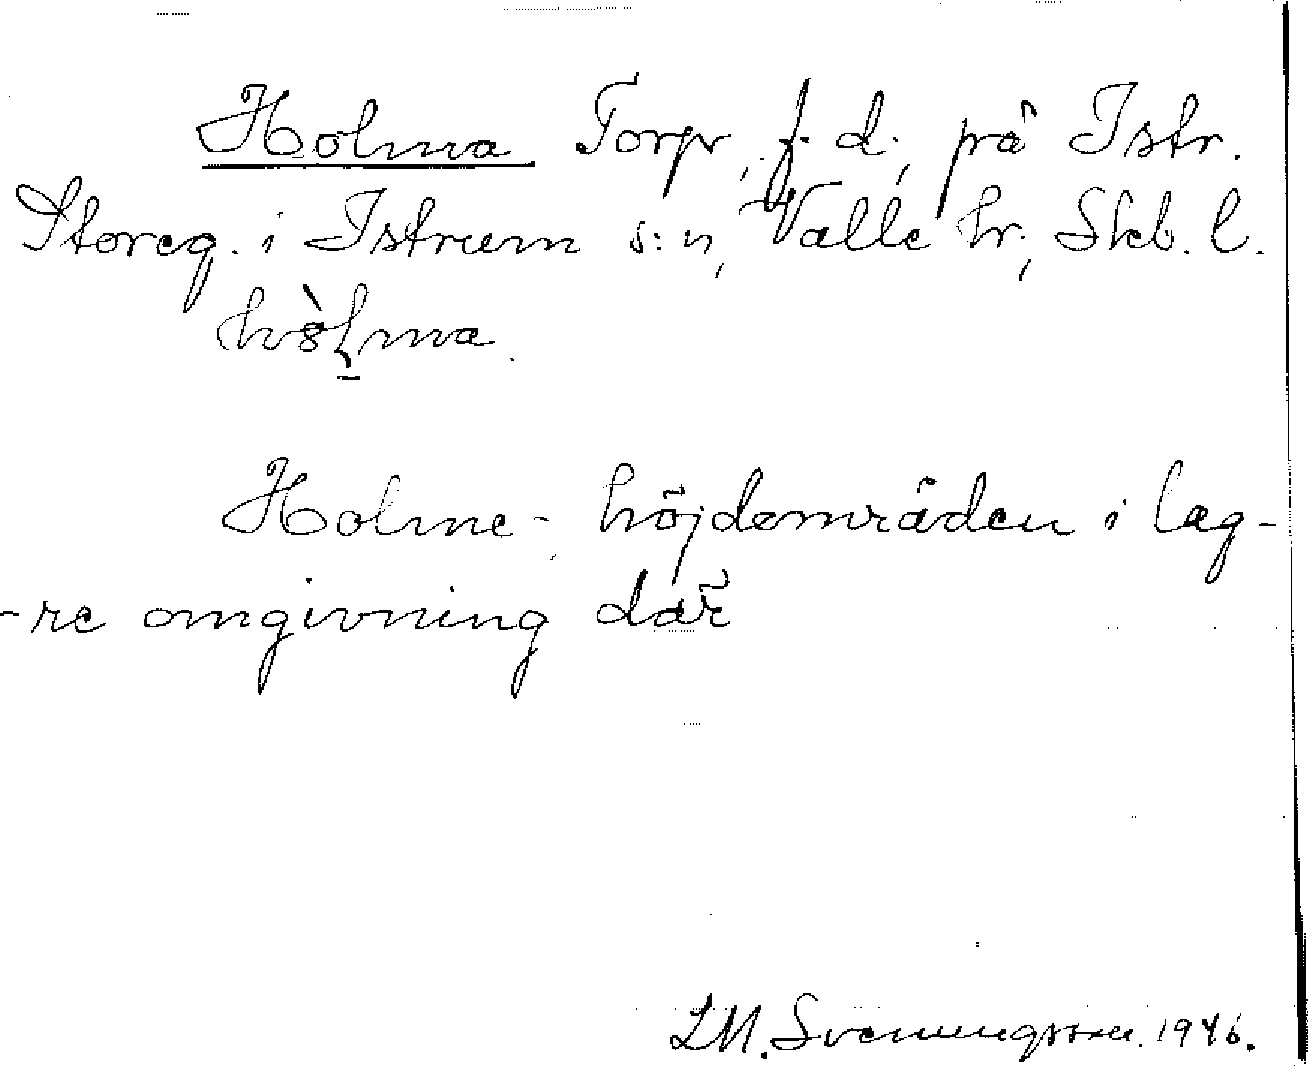 Holma Torp, f. d., på Istr.
Storeg. i Istrum s:n, Valle hr, Skb. l.
Holme - höjdområden i läg-
-re omgivning där
LM. Svenungsson. 1946.